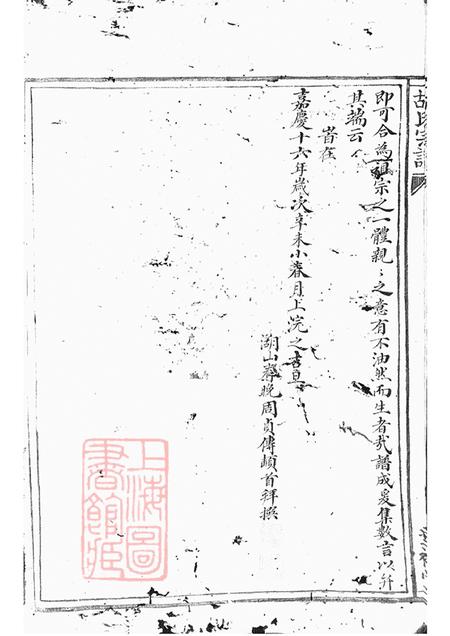 胡氏宗譜
即可合為祖宗之一體親〻之意有不油然而生者哉譜成爰集數言以弁
其端云
峕在
嘉慶十六年歲次辛未小春月上浣之吉旦
湖山眷晚周貞傳頓首拜撰
上海圖
書館藏